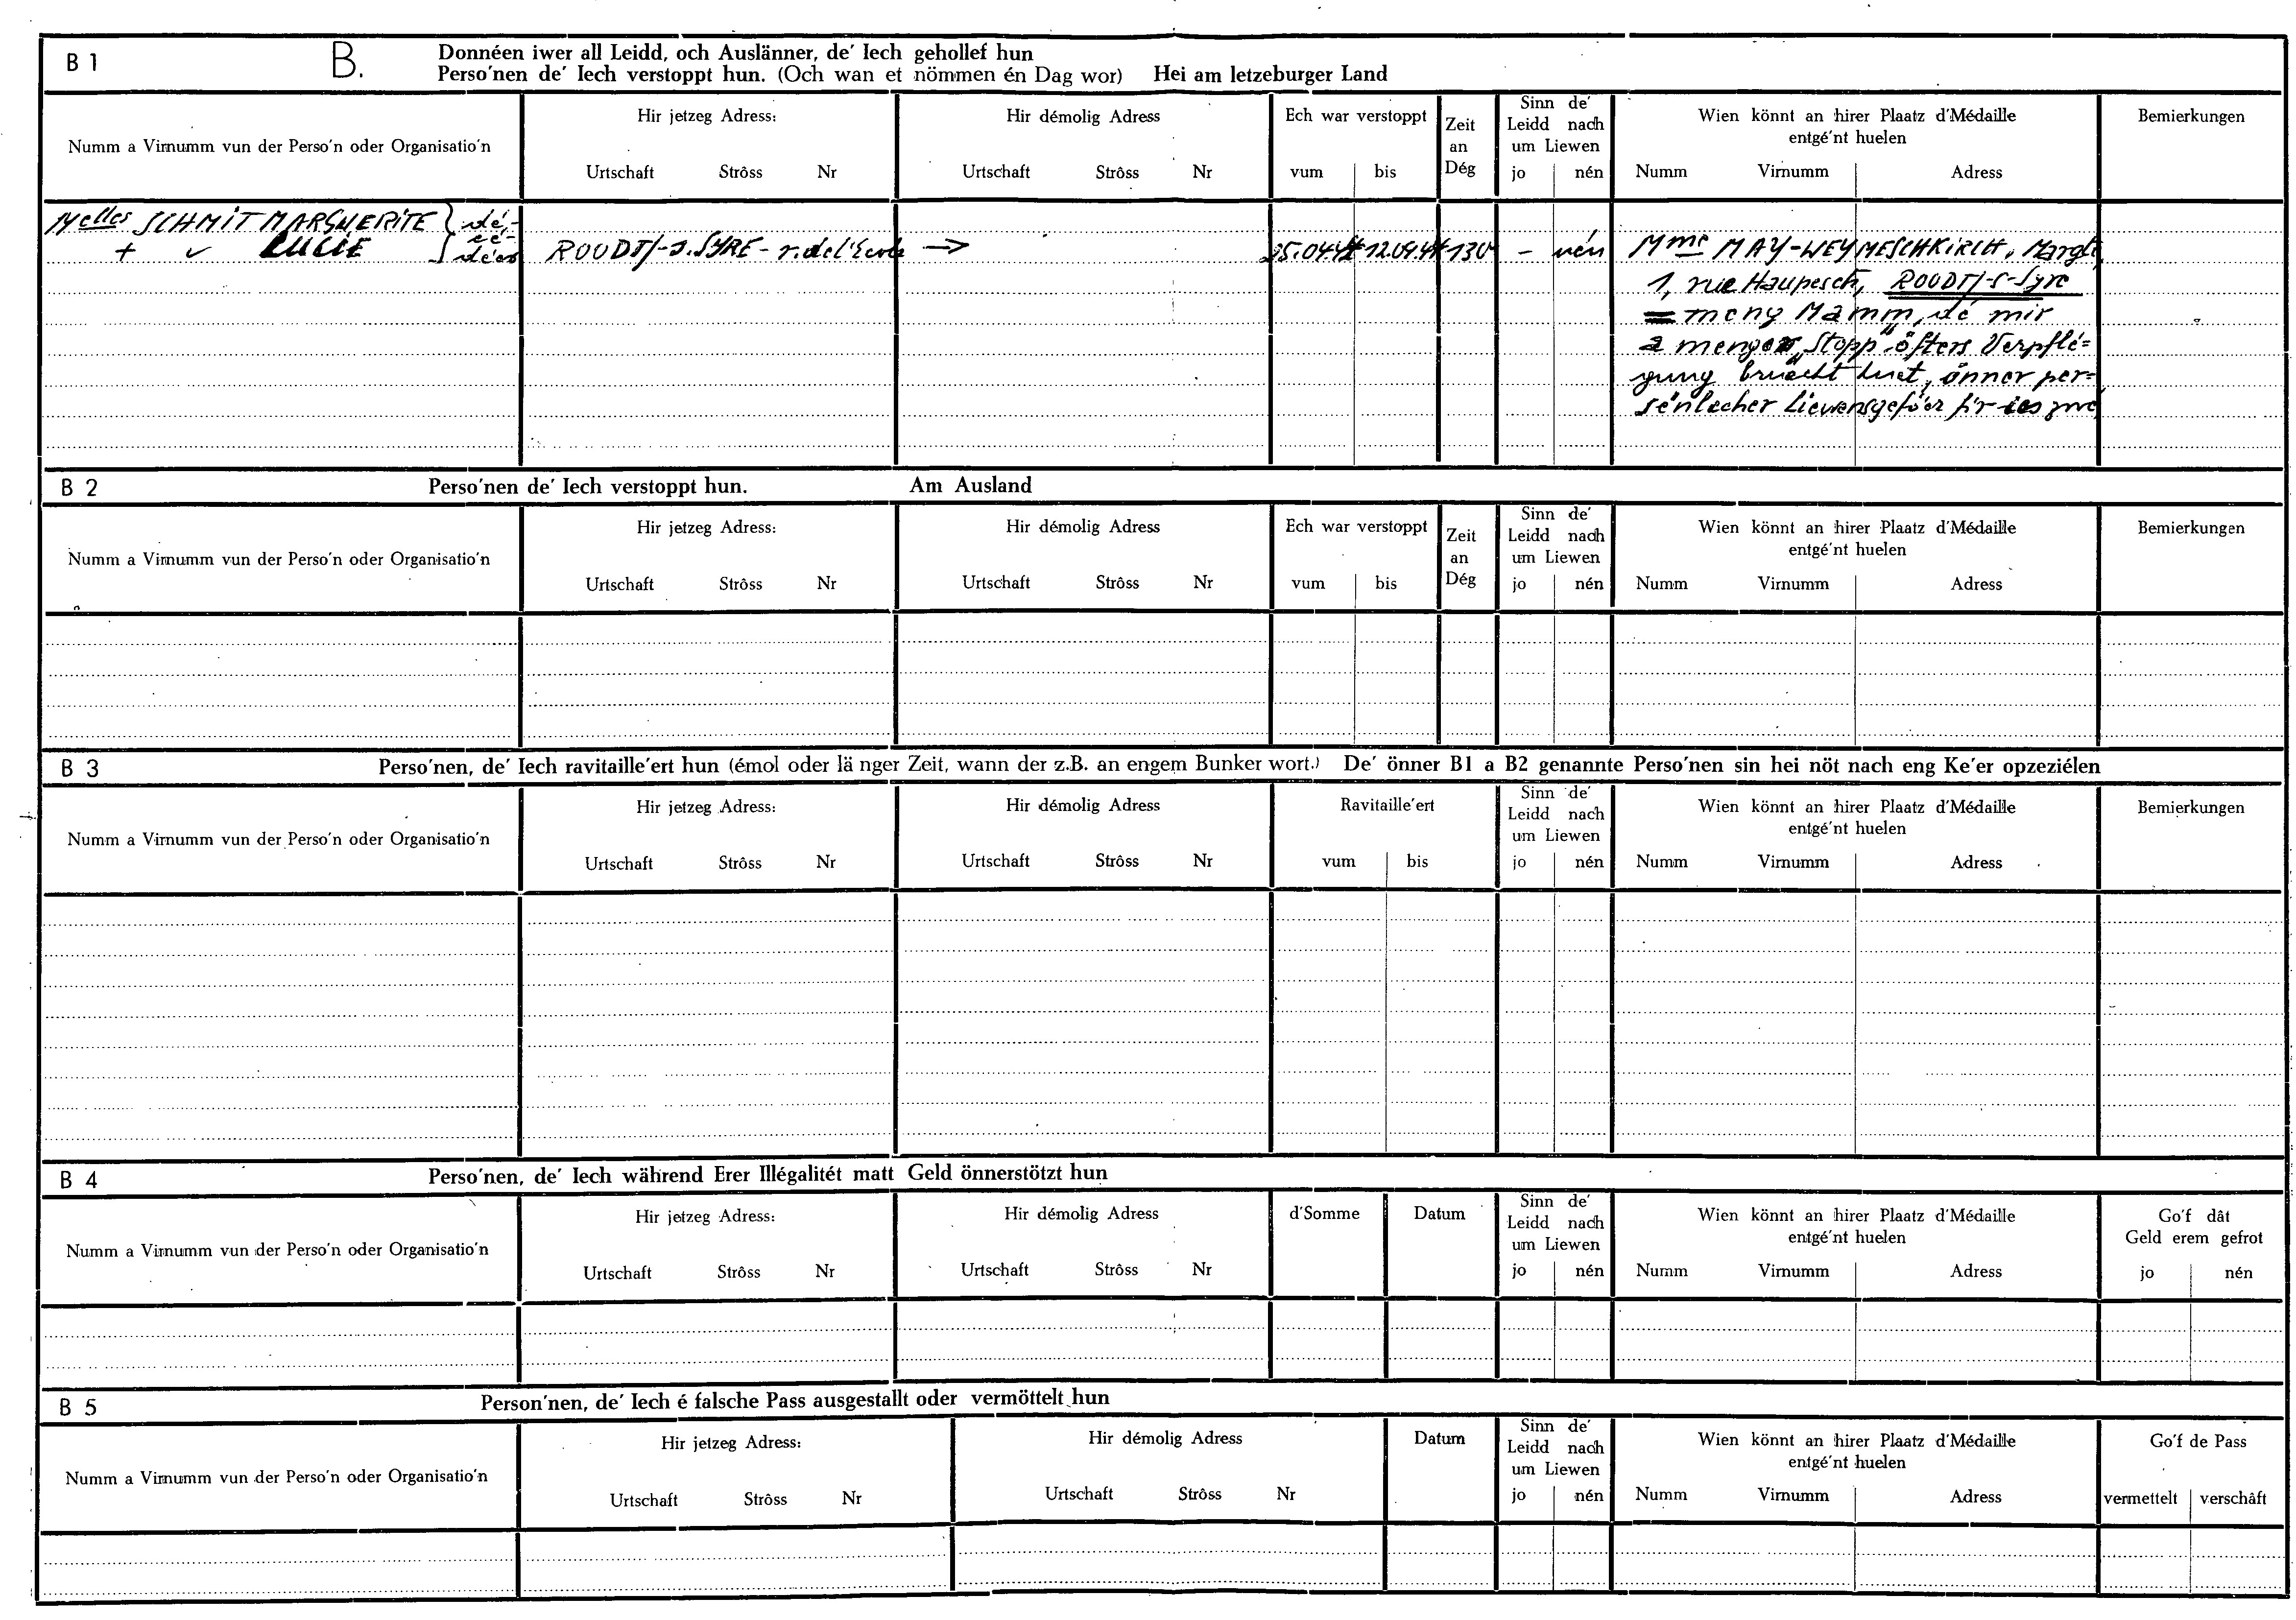 B 1
B.
Donnéen iwer all Leidd, och Auslänner, de' Iech gehollef hun
Perso'nen de' Iech verstoppt hun. (Och wan et nömmen én Dag wor) Hei am letzeburger Land
Numm a Virnumm vun der Perso'n oder Organisatio'n
Hir jetzeg Adress:
Urtschaft Strôss Nr
Hir démolig Adress
Urtschaft Strôss Nr
Ech war verstoppt
vum bis
Zeit
an
Dég
Sinn de'
Leidd nach
um Liewen
jo nén
Wien könnt an hirer Plaatz d'Médaille
entgé'nt huelen
Numm Virnumm Adress
Bemierkungen
Melles SCHMIT MARGUERITE } dé-
+ LUCIE cé-
dées
ROODT/-S.SYRE - r.del'Ecole →
25.04.44 12.09.44 130
- nén
Mme MAY-WEYMESCHKIRCH, Margte
1, rue Haupesch, ROODT/-S-Syre
= meng Mamm, dé mir
a menger „Stopp" öfters Verpflé=
gung bruecht huet, önner per=
sénlecher Liewensgefoer fir ies zwe
B 2
Perso'nen de' Iech verstoppt hun. Am Ausland
Numm a Virnumm vun der Perso'n oder Organisatio'n
Hir jetzeg Adress:
Urtschaft Strôss Nr
Hir démolig Adress
Urtschaft Strôss Nr
Ech war verstoppt
vum bis
Zeit
an
Dég
Sinn de'
Leidd nach
um Liewen
jo nén
Wien könnt an hirer Plaatz d'Médaille
entgé'nt huelen
Numm Virnumm Adress
Bemierkungen
B 3
Perso'nen, de' Iech ravitaille'ert hun (émol oder länger Zeit, wann der z.B. an engem Bunker wort.) De' önner B1 a B2 genannte Perso'nen sin hei nöt nach eng Ke'er opzeziélen
Numm a Virnumm vun der Perso'n oder Organisatio'n
Hir jetzeg Adress:
Urtschaft Strôss Nr
Hir démolig Adress
Urtschaft Strôss Nr
Ravitaille'ert
vum bis
Sinn de'
Leidd nach
um Liewen
jo nén
Wien könnt an hirer Plaatz d'Médaille
entgé'nt huelen
Numm Virnumm Adress
Bemierkungen
B 4
Perso'nen, de' Iech während Erer Illégalitét matt Geld önnerstötzt hun
Numm a Virnumm vun der Perso'n oder Organisatio'n
Hir jetzeg Adress:
Urtschaft Strôss Nr
Hir démolig Adress
Urtschaft Strôss Nr
d'Somme
Datum
Sinn de'
Leidd nach
um Liewen
jo nén
Wien könnt an hirer Plaatz d'Médaille
entgé'nt huelen
Numm Virnumm Adress
Go'f dât
Geld erem gefrot
jo nén
B 5
Person'nen, de' Iech é falsche Pass ausgestallt oder vermöttelt hun
Numm a Virnumm vun der Perso'n oder Organisatio'n
Hir jetzeg Adress:
Urtschaft Strôss Nr
Hir démolig Adress
Urtschaft Strôss Nr
Datum
Sinn de'
Leidd nach
um Liewen
jo nén
Wien könnt an hirer Plaatz d'Médaille
entgé'nt huelen
Numm Virnumm Adress
Go'f de Pass
vermettelt verschâft